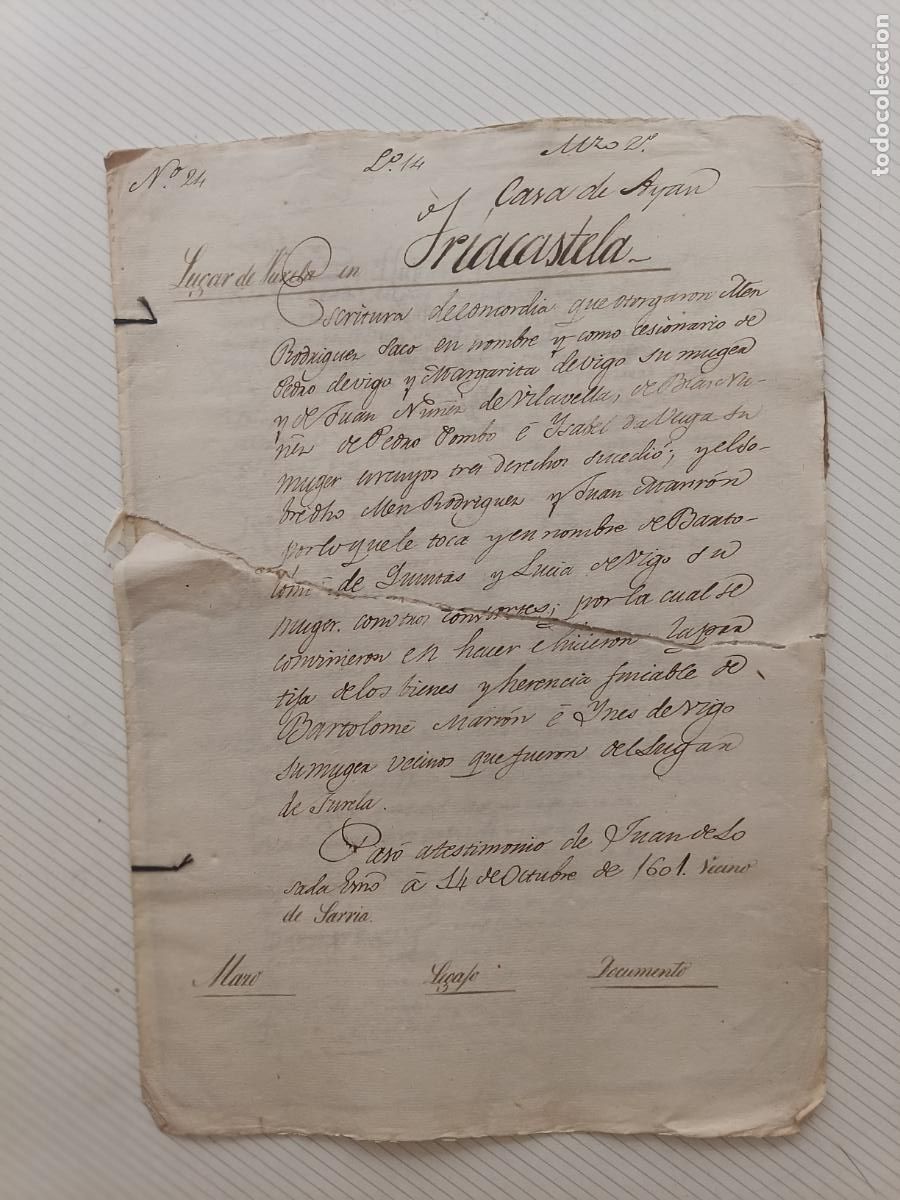 todocoleccion
N.º 24 Lº. 14 Mzo 2º.
Casa de Ayan
Lugar de Turela en Triacastela
Escritura de concordia que otorgaron Men
Rodriguez Saco en nombre y como cesionario de
Pedro de vigo y Margarita de vigo su muger
y de Juan Nuñez de Vilavella, de Blas Nu-
ñez de Pedro Pombo é Ysabel da Veiga su
muger en cuyos tres derechos sucedió; y el so-
bredho Men Rodriguez y Juan Marrón
por lo que le toca y en nombre de Barto-
lomé de Quintas y Lucia de Vigo su
muger. con otros consortes; por la cual se
convinieron en hacer e hicieron la par
tija de los bienes y herencia fincable de
Bartolomé Marrón é Ynes de Vigo
su muger vecinos que fueron del Lugar
de Turela.
Pasó a testimonio de Juan de Lo
sada Erno á 14 de Octubre de 1601. Vecino
de Sarria.
Mazo Legajo Documento